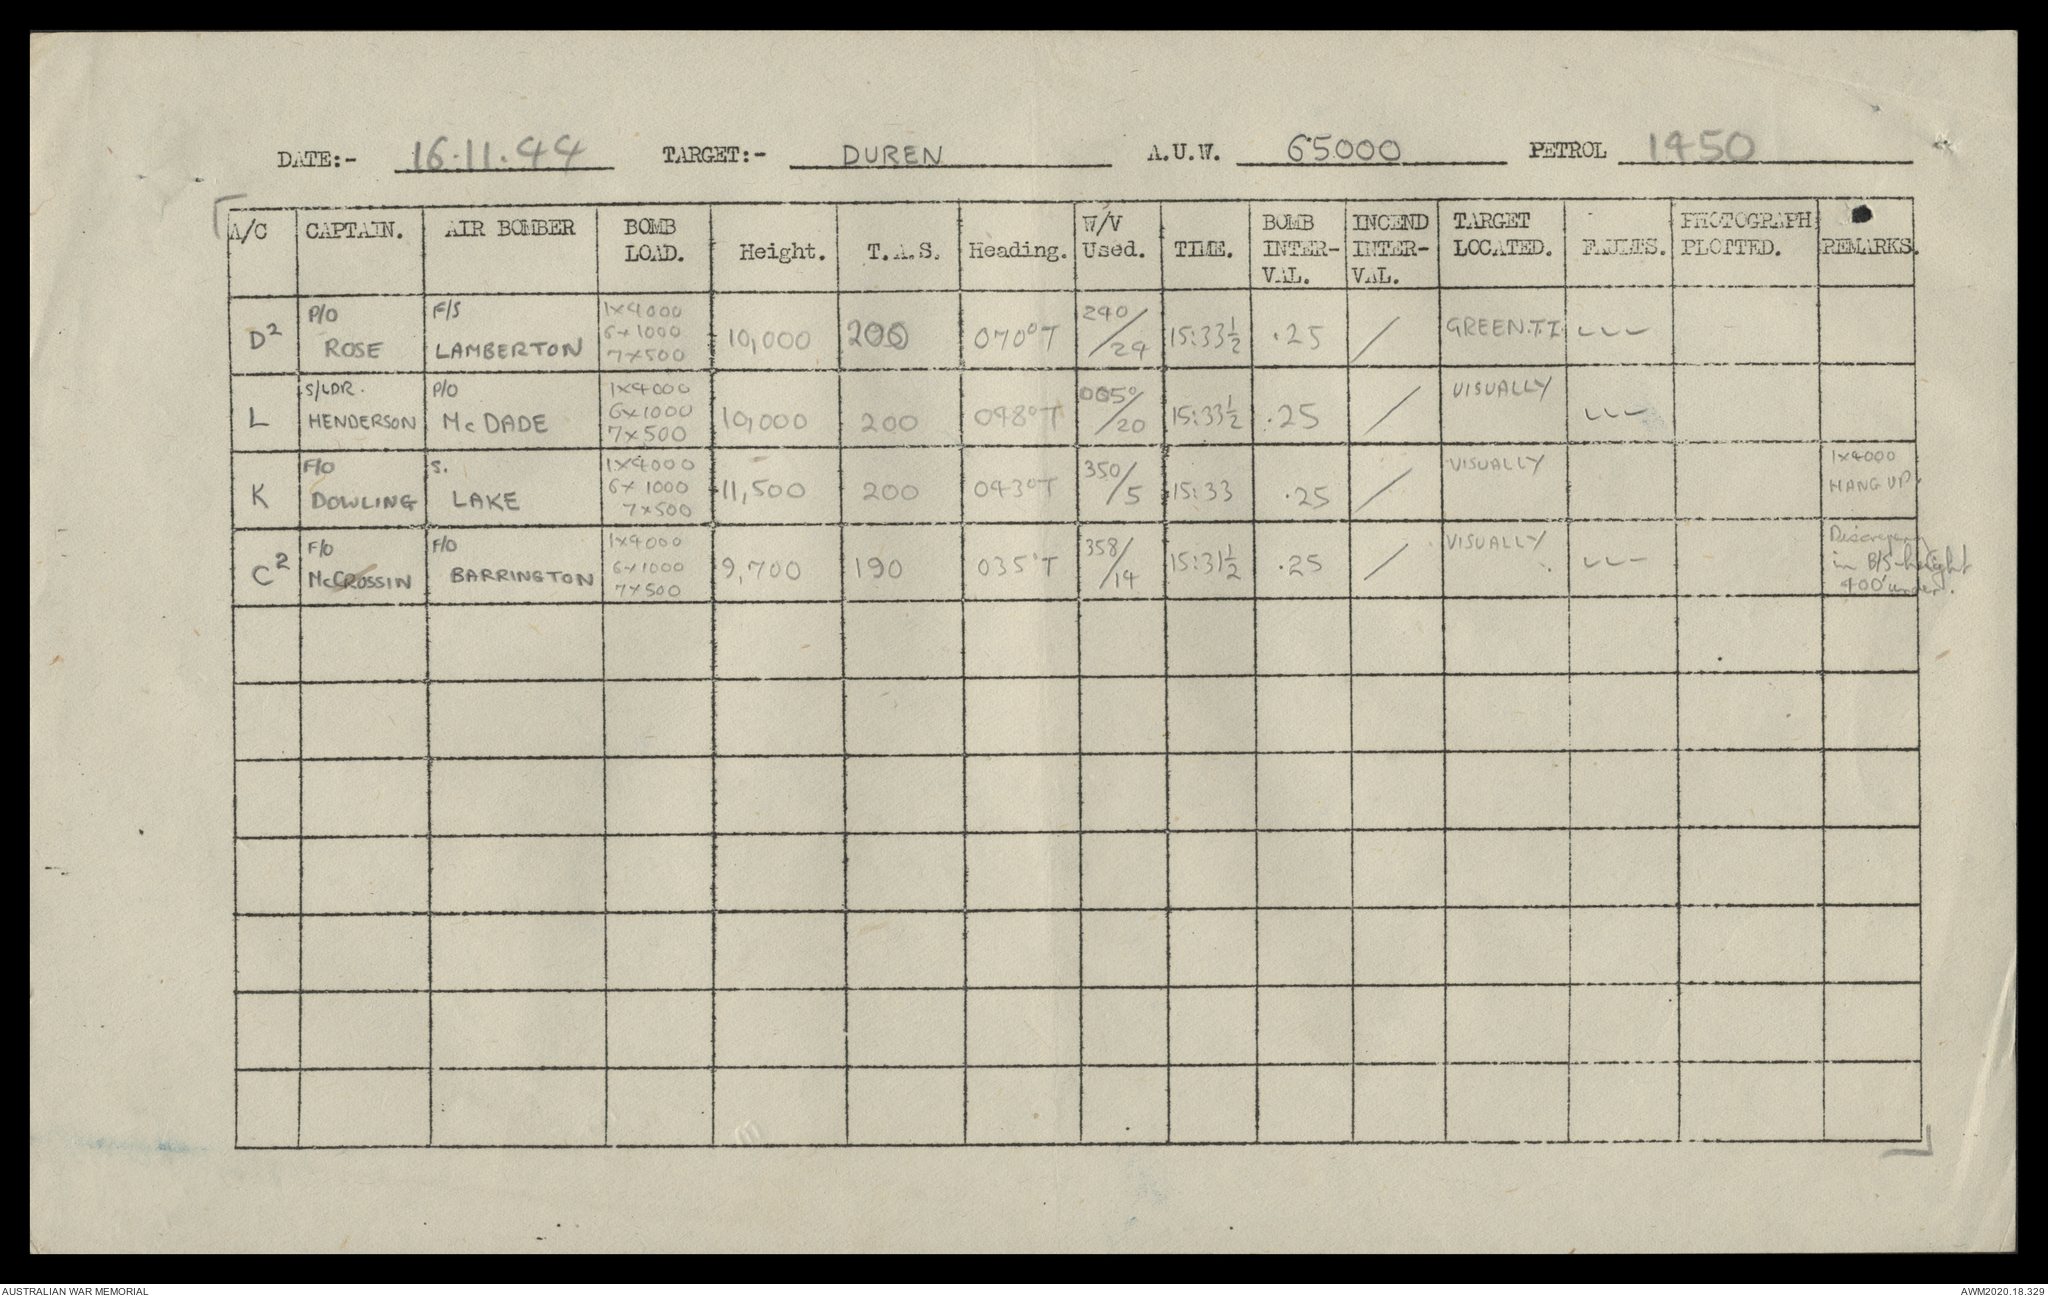 DATE:- 16.11.44 TARGET:- DUREN A.U.W. 65000 PETROL 1450
A/C CAPTAIN. AIR BOMBER BOMB LOAD. Height. T.A.S. Heading. W/V Used. TIME. BOMB INTER-VAL. INCEND INTER-VAL. TARGET LOCATED. FAULTS. PHOTOGRAPH PLOTTED. REMARKS.
D² P/O ROSE F/S LAMBERTON 1x4000 6x1000 7x500 10,000 200 070°T 240/24 15:33½ .25 / GREEN.T.I
L S/LDR. HENDERSON P/O McDADE 1x4000 6x1000 7x500 10,000 200 048°T 005°/20 15:33½ .25 / VISUALLY
K F/O DOWLING S. LAKE 1x4000 6x1000 7x500 11,500 200 043°T 350/5 15:33 .25 / VISUALLY 1x4000 HANG UP.
C² F/O McCROSSIN F/O BARRINGTON 1x4000 6x1000 7x500 9,700 190 035°T 358/14 15:31½ .25 / VISUALLY Discrepancy in B/S height 400' under.
AUSTRALIAN WAR MEMORIAL AWM2020.18.329